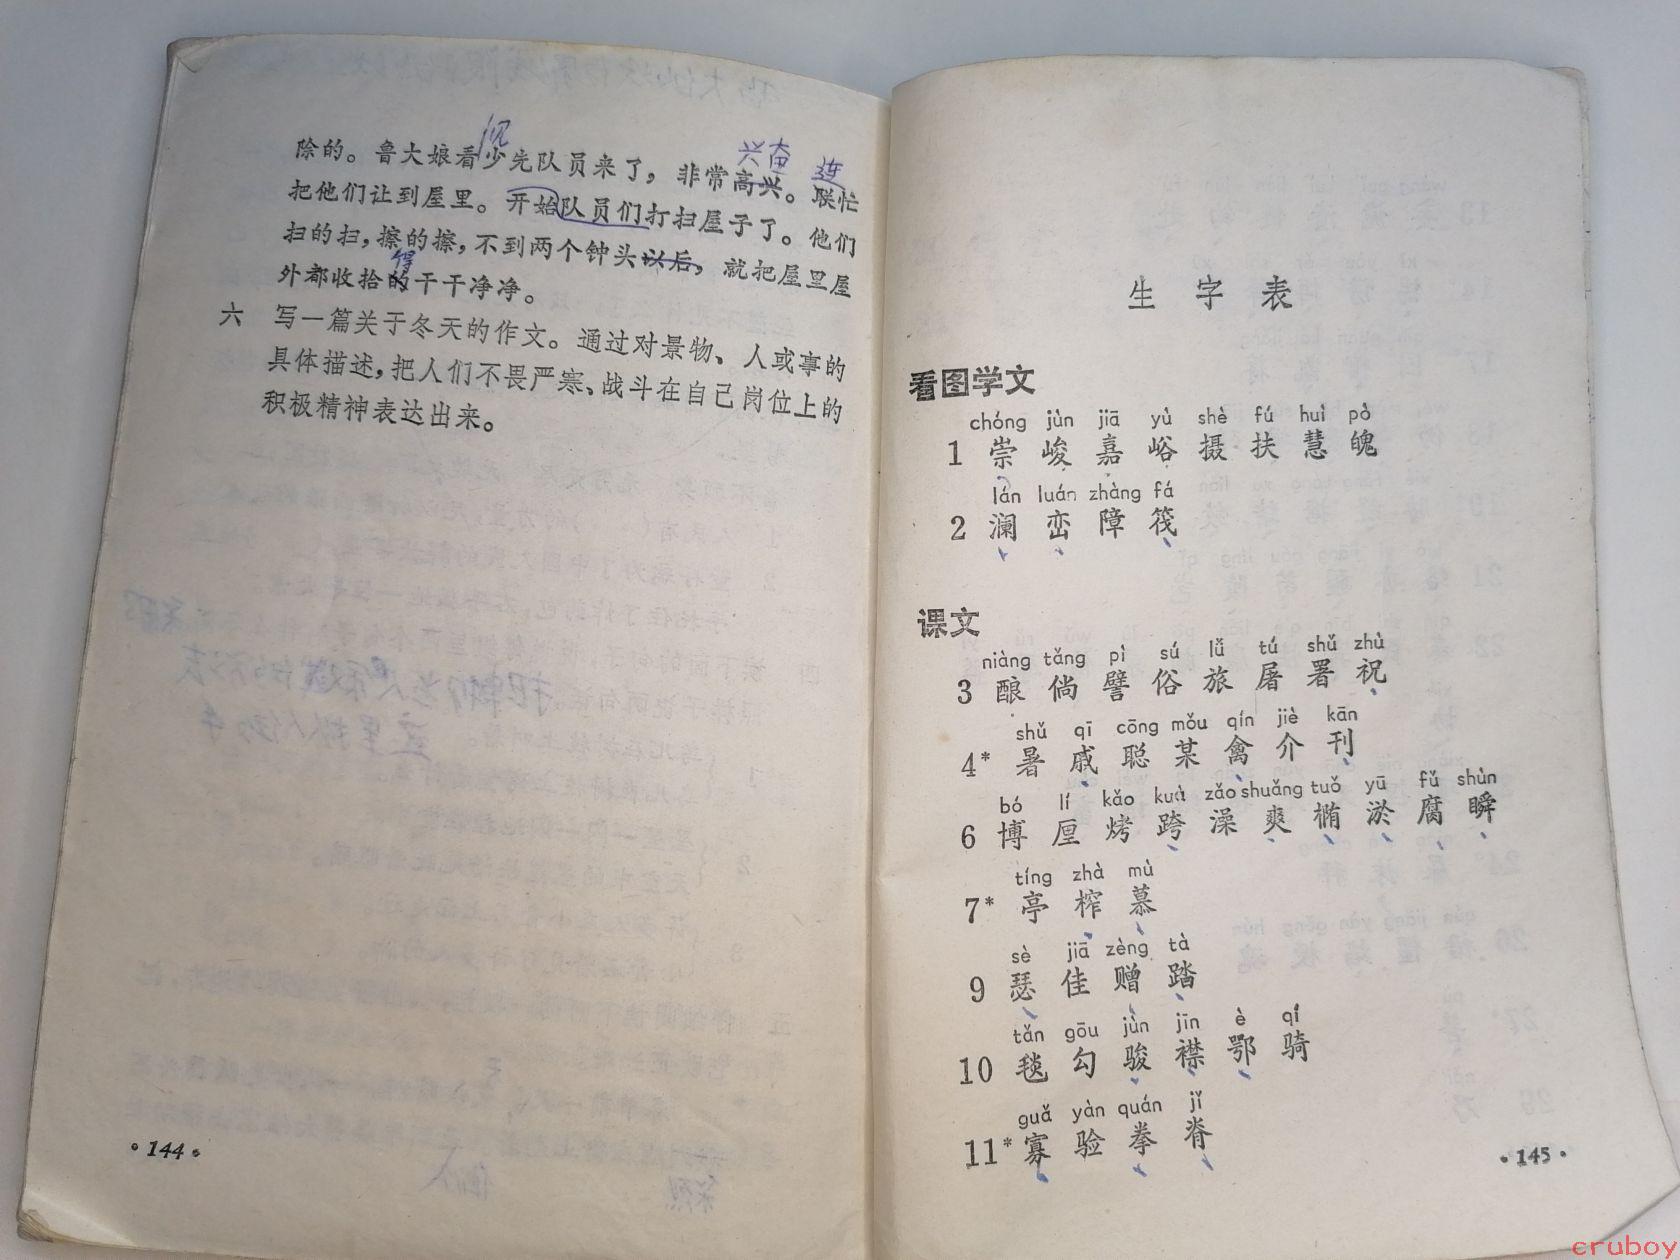 除的。鲁大娘看少先队员来了，非常高兴。联忙
兴奋
连
把他们让到屋里。开始队员们打扫屋子了。他们
扫的扫，擦的擦，不到两个钟头以后，就把屋里屋
得
外都收拾的干干净净。
六 写一篇关于冬天的作文。通过对景物、人或事的
具体描述，把人们不畏严寒、战斗在自己岗位上的
积极精神表达出来。
·144·
生字表
看图学文
chóng jùn jiā yù shè fú huì pò
1 崇 峻 嘉 峪 摄 扶 慧 魄
lán luán zhàng fá
2 澜 峦 障 筏
课文
niàng tǎng pì sú lǚ tú shǔ zhù
3 酿 倘 譬 俗 旅 屠 署 祝
shǔ qī cōng mǒu qín jiè kān
4* 暑 戚 聪 某 禽 介 刊
bó lí kǎo kuà zǎo shuǎng tuǒ yū fǔ shùn
6 博 厘 烤 跨 澡 爽 椭 淤 腐 瞬
tíng zhà mù
7* 亭 榨 慕
sè jiā zèng tà
9 瑟 佳 赠 踏
tǎn gōu jùn jīn è qí
10 毯 勾 骏 襟 鄂 骑
guǎ yàn quán jǐ
11* 寡 验 拳 脊
·145·
cruboy